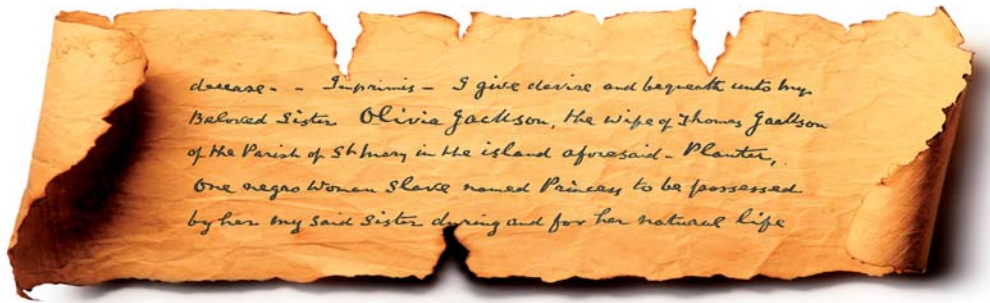 decease - - Imprimis - I give devise and bequeath unto my
Beloved Sister Olivia Jackson, the wife of Thomas Jackson
of the Parish of St Mary in the island aforesaid - Planter,
One negro Woman Slave named Princess to be possessed
by her my said Sister during and for her natural life